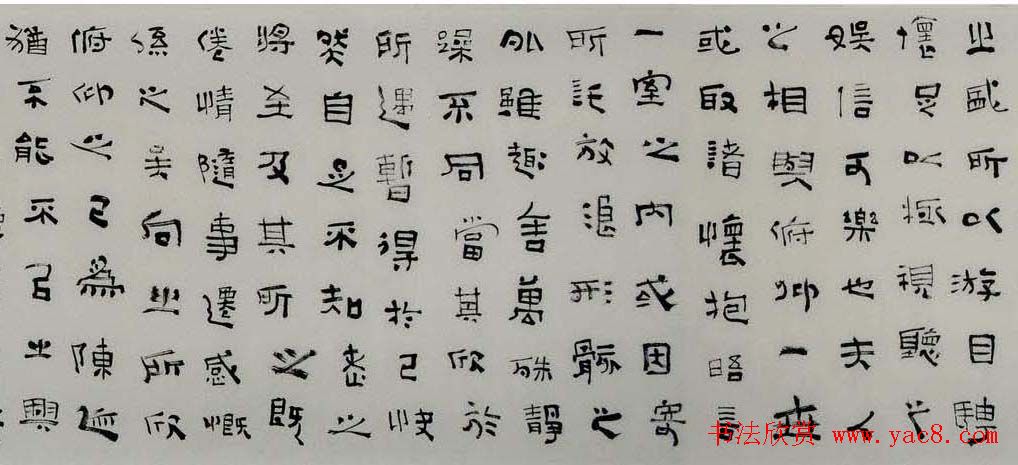 之盛所以游目騁
懷足以極視聽之
娛信可樂也夫人
之相與俯仰一世
或取諸懷抱晤言
一室之內或因寄
所託放浪形骸之
外雖趣舍萬殊靜
躁不同當其欣於
所遇暫得於己快
然自足不知老之
將至及其所之既
倦情隨事遷感慨
係之矣向之所欣
俯仰之已為陳迹
猶不能不以之興
书法欣赏 www.yac8.com